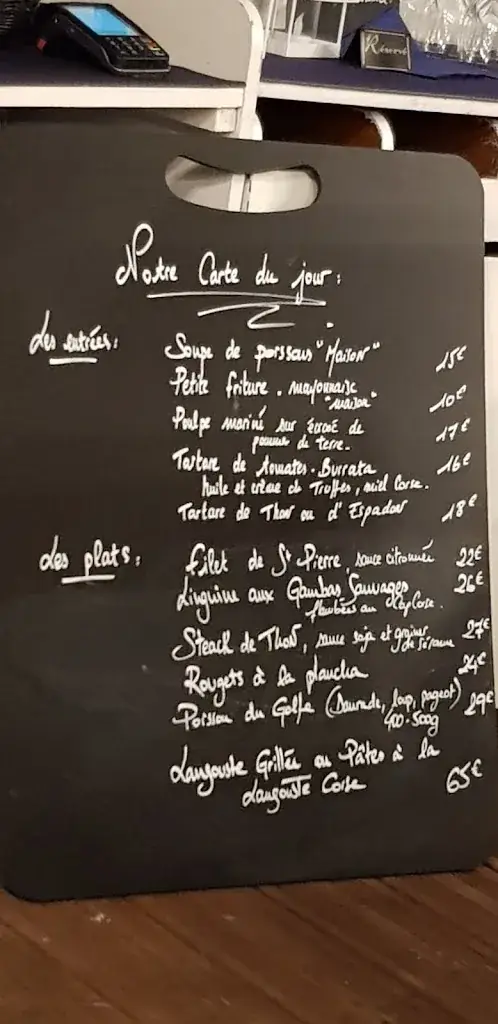 Réservé
Notre Carte du jour :
Les entrées :
Soupe de poissons "Maison" 15€
Petite friture . mayonnaise
"maison" 10€
Poulpe mariné sur écrasé de
pomme de terre. 17€
Tartare de tomates . Burrata 16€
huile et crème de Truffes, miel Corse.
Tartare de Thon ou d'Espadon 18€
Les plats :
Filet de St Pierre, sauce citronnée 22€
Linguine aux Gambas Sauvages 26€
flambées au Cap Corse.
Steack de Thon, sauce soja et graines 27€
de sésame
Rougets à la plancha 24€
Poisson du Golfe (Daurade, loup, pageot) 29€
400-500g
Langouste Grillée ou Pâtes à la
Langouste Corse 65€